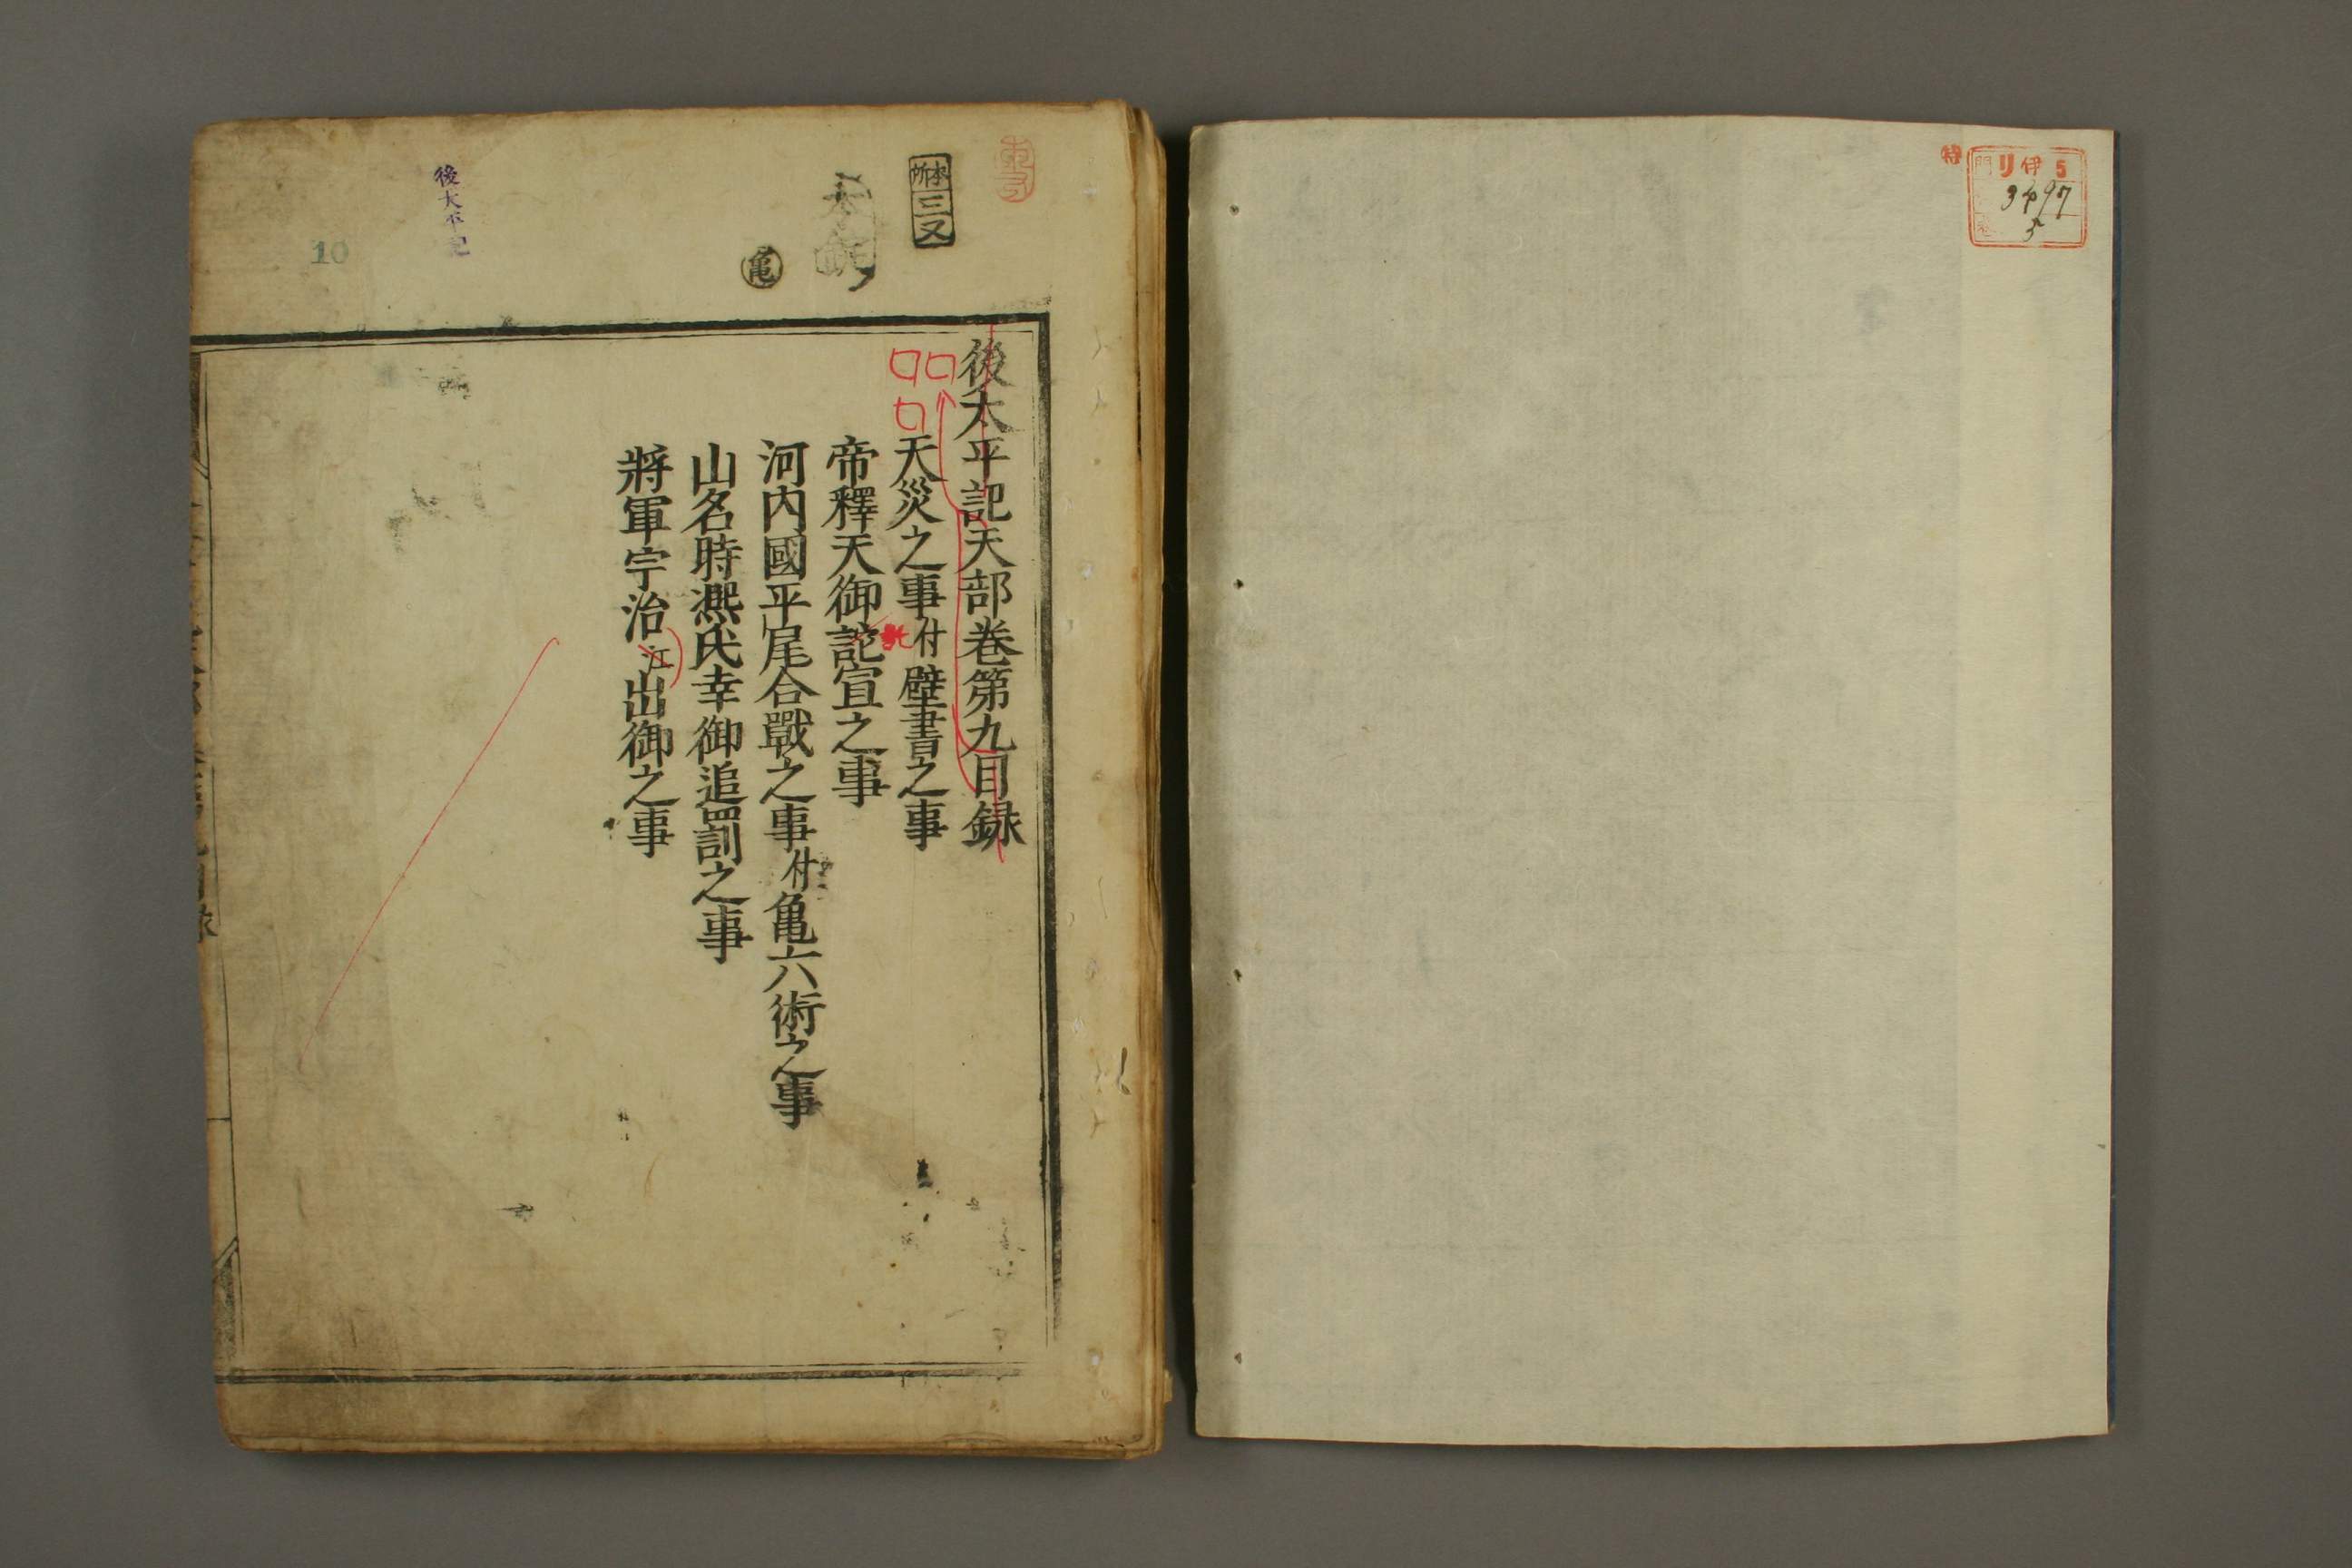 特
門 リ 伊 5
3497
5
本所
三又
亀
後太平記
10
後太平記天部巻第九目録
天災之事付壁書之事
帝釋天御詫宣之事
河内國平尾合戰之事付亀六術之事
山名時凞氏幸御追罰之事
將軍宇治江出御之事